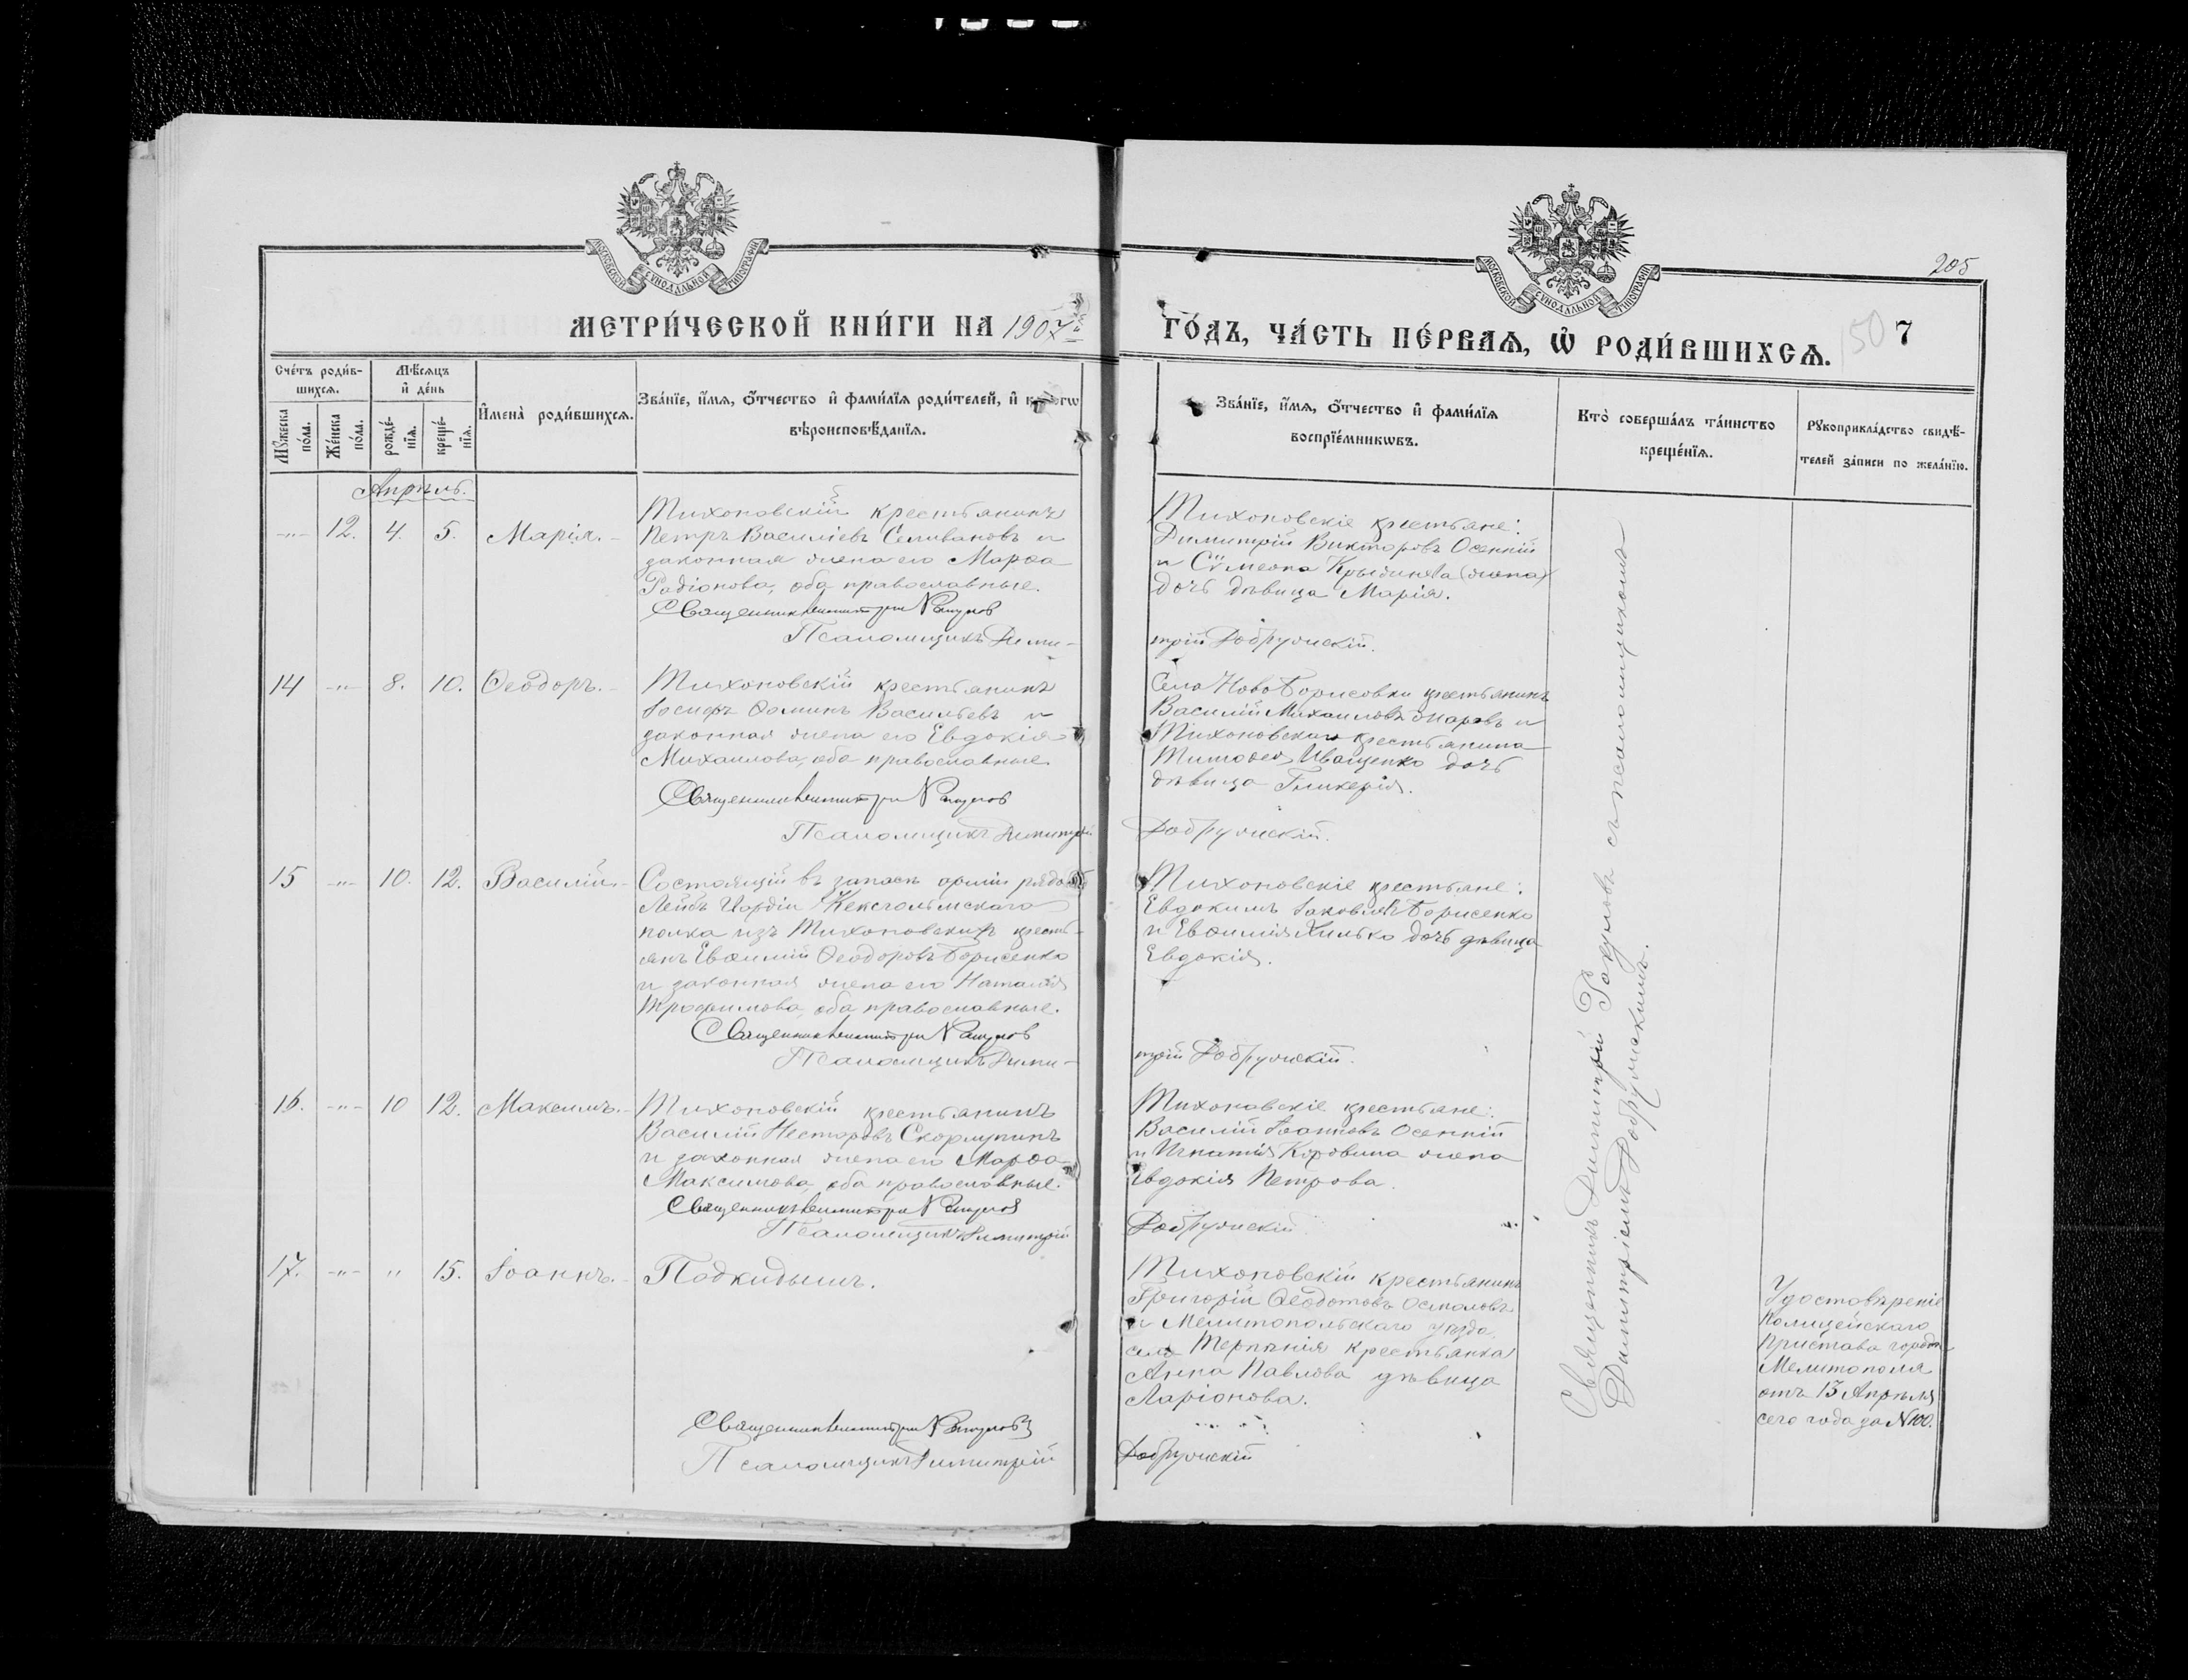 205
МОСКОВСКОЙ СѴНОДАЛЬНОЙ ТИПОГРАФІИ
МОСКОВСКОЙ СѴНОДАЛЬНОЙ ТИПОГРАФІИ
МЕТРИ́ЧЕСКОЙ КНИ́ГИ НА 1907й
ГО́ДЪ, ЧА́СТЬ ПЕ́РВАѦ, Ѡ҆ РОДИ́ВШИХСѦ. 150 7
Сче́тъ роди́в-
шихсѧ.
Мꙋ́жеска
по́ла.
Же́нска
по́ла.
Мѣ́сѧцъ
и҆ де́нь
рожде́-
нїѧ.
креще́-
нїѧ.
И҆мена̀ роди́вшихсѧ.
Зва́нїе, и҆́мѧ, ѻ҆́тчество и҆ фами́лїѧ роди́телей, и҆
вѣроисповѣ́данїѧ.
Зва́нїе, и҆́мѧ, ѻ҆́тчество и҆ фами́лїѧ
воспрїе́мникѡвъ.
Кто̀ соверша́лъ та́инство
креще́нїѧ.
Рꙋкоприкла́дство свидѣ́-
телей за́писи по жела́нїю.
Апрѣль.
-"- 12. 4. 5. Марія.
Тихоновскій крестьянинъ
Петръ Василіевъ Селивановъ и
законная жена его Марѳа
Радіонова, оба православные.
Священникъ Димитрій Разумов
Псаломщикъ Дими-
Тихоновскіе крестьяне:
Димитрій Викторовъ Осенній
и Сѵмеона (жена)
дочь дѣвица Марія.
трій Добружскій.
14 -"- 8. 10. Ѳеодоръ.
Тихоновскій крестьянинъ
Іосифъ Ѳоминъ Васильевъ и
законная жена его Евдокія
Михаилова, оба православные.
Священникъ Димитрій Разумов
Псаломщикъ Димитрій
Села НовоБорисовки крестьянинъ
Василій Михаиловъ и
Тихоновскаго крестьянина
Тимоѳея Иващенко дочь
дѣвица Гликерія.
Добружскій.
15 -"- 10. 12. Василій.
Состоящій въ запасѣ арміи рядовой
Лейбъ Гвардіи Кексгольмскаго
полка изъ Тихоновскихъ кресть-
янъ Евѳимій Ѳеодоровъ Борисенко
и законная жена его Наталія
Трофимова, оба православные.
Священникъ Димитрій Разумов
Псаломщикъ Дими-
Тихоновскіе крестьяне:
Евдокимъ Іаковлевъ Борисенко
и Евѳимія Хилько дочь дѣвица
Евдокія.
трій Добружскій.
16. -"- 10 12. Максимъ.
Тихоновскій крестьянинъ
Василій Несторовъ Скорлупинъ
и законная жена его Марѳа
Максимова, оба православные.
Священникъ Димитрій Разумов
Псаломщикъ Димитрій
Тихоновскіе крестьяне:
Василій Іоанновъ Осенній
и Игнатія Коровина жена
Евдокія Петрова.
Добружскій
17. -"- " 15. Іоаннъ.
Подкидышъ.
Священникъ Димитрій Разумов
Псаломщикъ Димитрій
Тихоновскій крестьянинъ
Григорій Ѳеодотовъ
и Мелитопольскаго уѣзда
села Терпѣнія крестьянка
Анна Павлова дѣвица
Ларіонова.
Добружскій
Священникъ Димитрій Разумовъ съ псаломщикомъ
Димитріемъ Добружскимъ.
Удостовѣреніе
Полицейскаго
Пристава города
Мелитополя
отъ 13 Апрѣля
сего года за N 100.